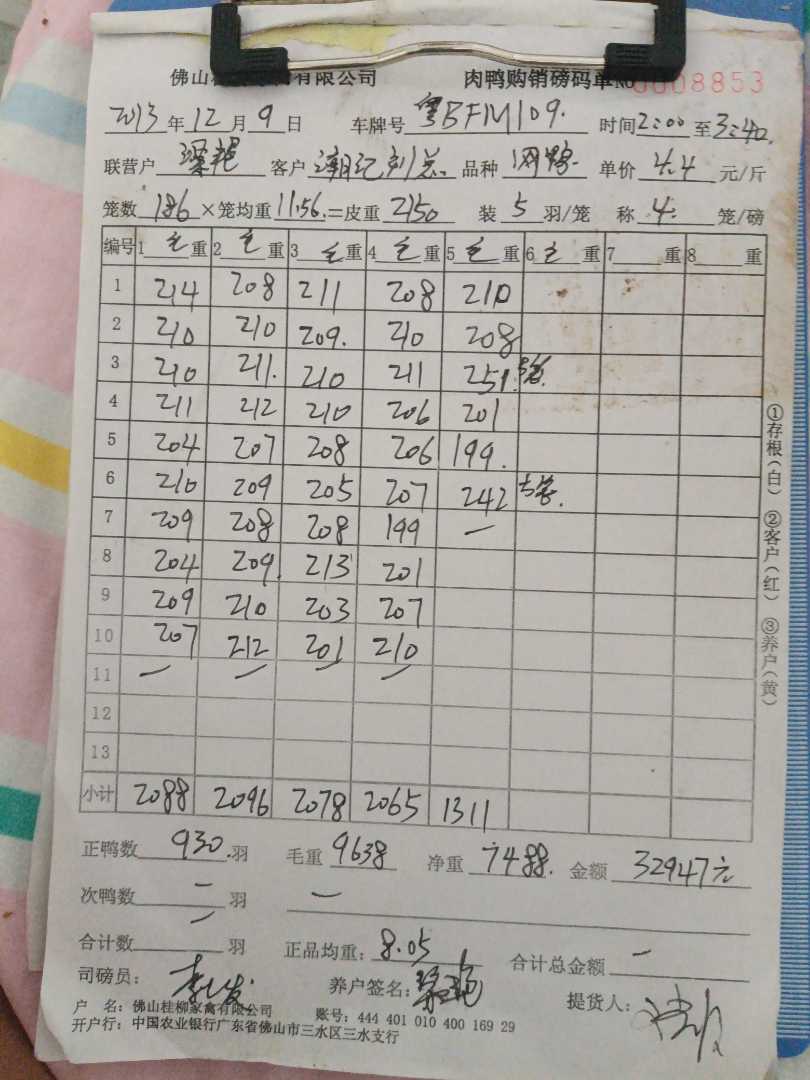 佛山桂柳家禽有限公司 肉鸭购销磅码单 No 0008853
2013年12月9日 车牌号 粤BFM109. 时间2:00至3:40.
联营户 客户 潮记刘总. 品种 单价 4.4 元/斤
笼数 186 ×笼均重 11.56.=皮重 2150 装 5 羽/笼 称 4: 笼/磅
编号 1 毛 重 2 毛 重 3 毛 重 4 毛 重 5 毛 重 6 毛 重 7 重 8 重
1 214 208 211 208 210
2 210 210 209. 210 208
3 210 211. 210 211 251 5笼.
4 211 212 210 206 201
5 204 207 208 206 199.
6 210 209 205 207 242 5笼.
7 209 208 208 199 —
8 204 209. 213 201
9 209 210 203 207
10 207 212 201 210
11 — — — —
12
13
小计 2088 2096 2078 2065 1311
正鸭数 930.羽 毛重 9638 净重 7488. 金额 32947元
次鸭数 — 羽 —
合计数 — 羽 正品均重: 8.05 合计总金额 —
司磅员: 养户签名: 提货人:
户 名: 佛山桂柳家禽有限公司 账号: 444 401 010 400 169 29
开户行: 中国农业银行广东省佛山市三水区三水支行
①存根(白) ②客户(红) ③养户(黄)